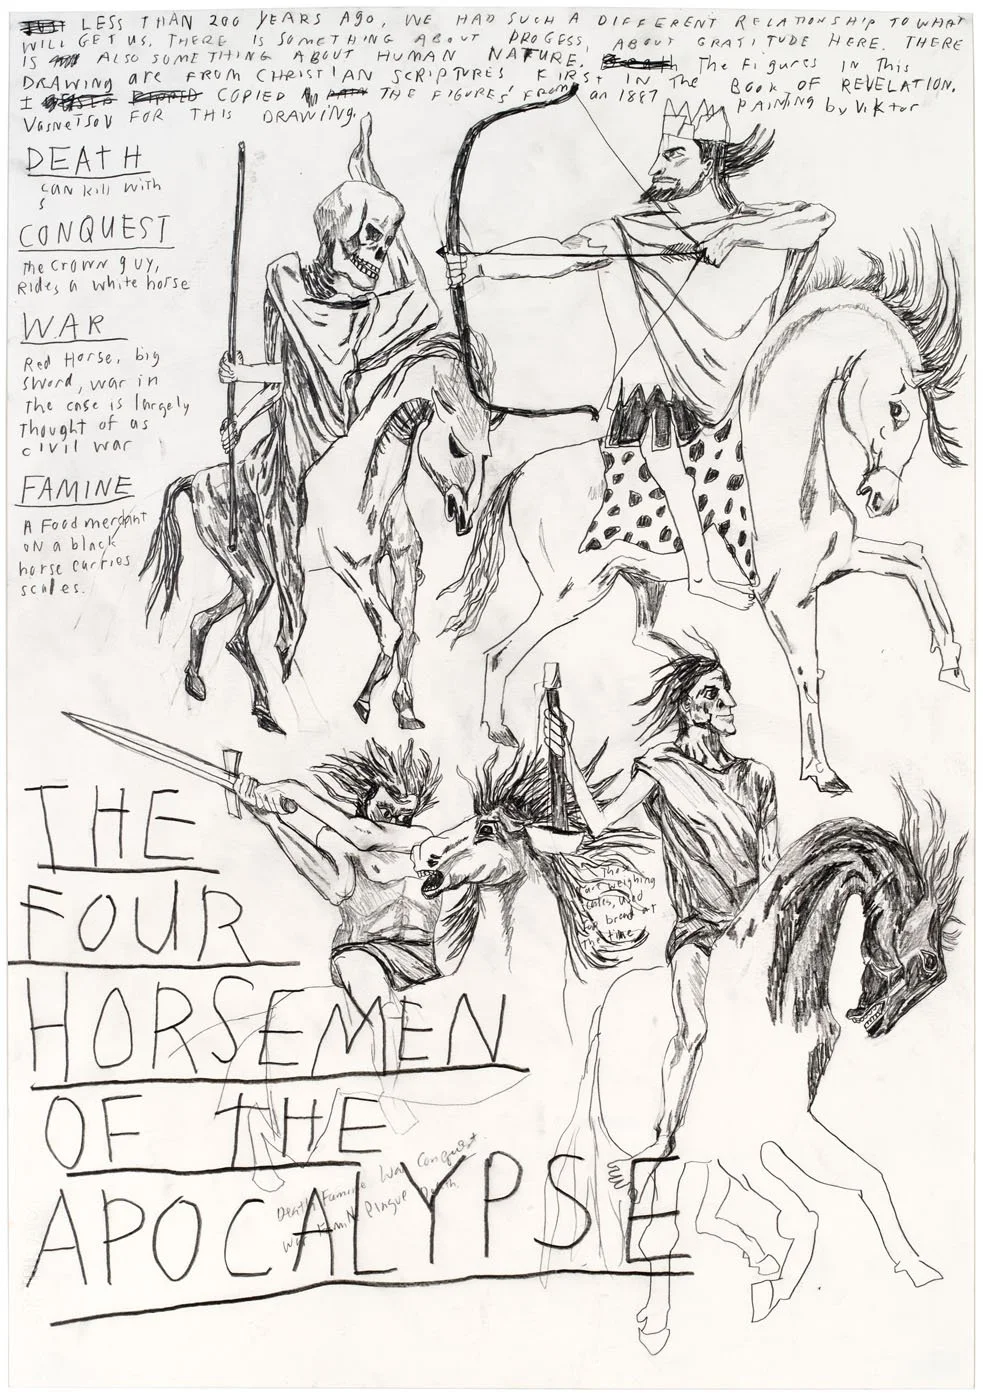 LESS THAN 200 YEARS AGO, WE HAD SUCH A DIFFERENT RELATIONSHIP TO WHAT
WILL GET US. THERE IS SOMETHING ABOUT PROGESS, ABOUT GRATITUDE HERE. THERE
IS ALSO SOMETHING ABOUT HUMAN NATURE. The Figures IN This
DRAWING are FROM CHRISTIAN SCRIPTURES FIRST IN The BOOK OF REVELATION.
I COPIED THE FIGURES FROM an 1887 PAINTING by Viktor
VASNETSOV FOR THIS DRAWING.
DEATH
CAN kill with
CONQUEST
The Crown guy,
Rides a white horse
WAR
Red Horse, big
sword, war in
The case is largely
Thought of as
civil war
FAMINE
A Food merchant
ON a black
horse carries
scales.
Those
are weighing
scales, used
for bread at
The time
THE
FOUR
HORSEMEN
OF THE
APOCALYPSE
Death Famine War Conquest
War Famine Plague Death